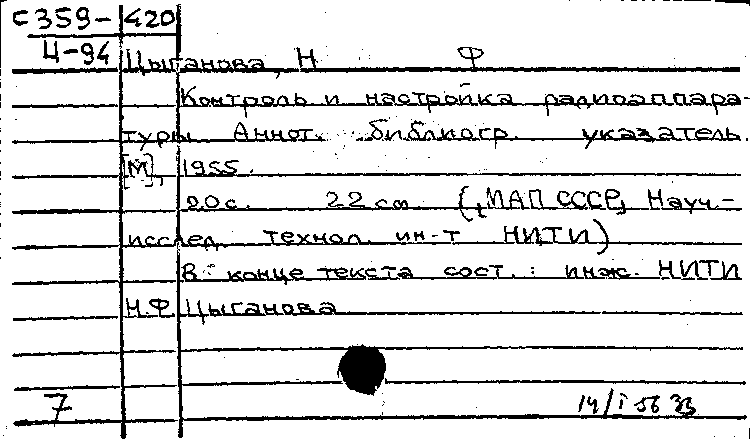 С359-420
Ц-94
Цыганова, Н Ф
Контроль и настройка радиоаппара-
туры. Аннот. библиогр. указатель.
[М], 1955.
20с. 22 см (МАП СССР, Науч.-
исслед. технол. ин-т НИТИ)
В конце текста сост.: инж. НИТИ
Н.Ф Цыганова
7
14/I 56